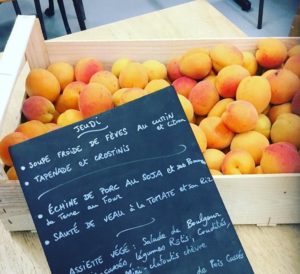 JEUDI
• SOUPE FROIDE DE FÈVES AU CUMIN et Citron
• TAPENADE et CROSTINIS
• ÉCHINE DE PORC AU SOJA et ses
de Terre au Four
• SAUTÉ DE VEAU à la TOMATE et son Riz
ASSIETTE VÉGÉ : Salade de Boulgour
légumes Rôtis, Crudités,
Mini-clafoutis chèvre